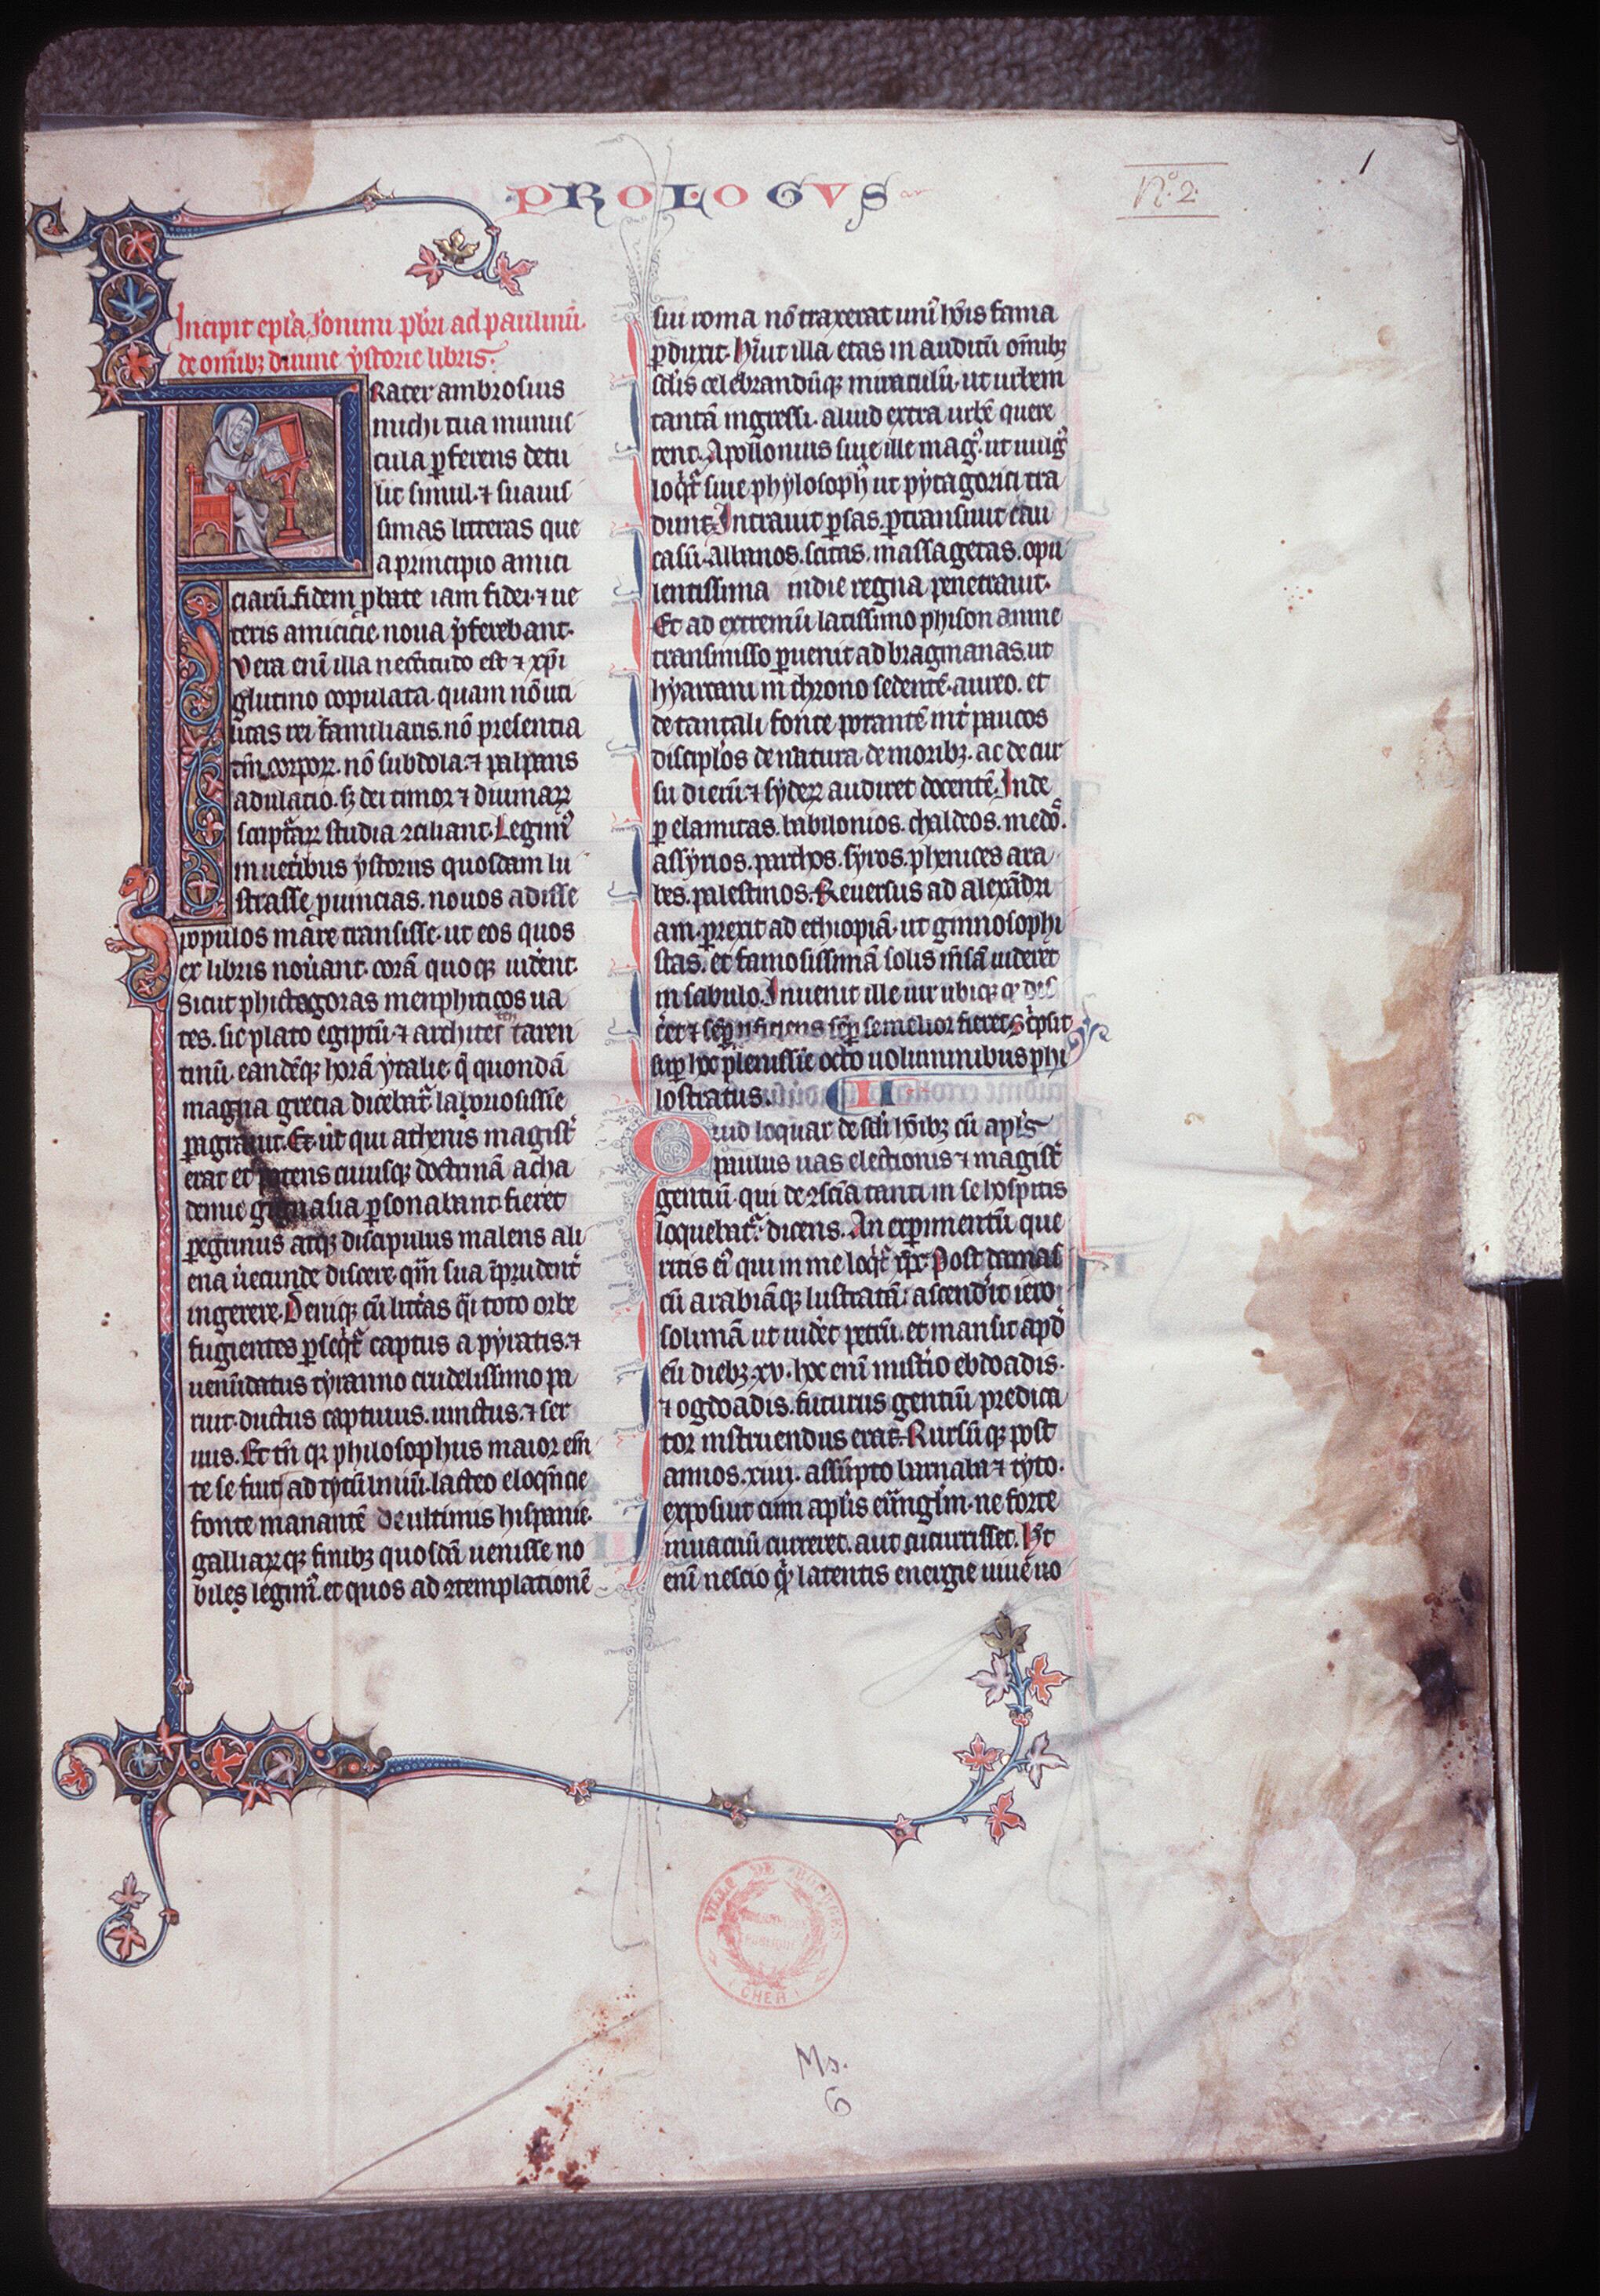 PROLOGVS
Nº. 2.
1
Incipit epl̄a Ieronimi pb̄ri ad paulinū.
de om̄ibꝫ diuine ẏstorie libris.
FRater ambrosius
michi tua munus
cula ꝑferens detu
lit simul ⁊ suauis
simas litteras que
a principio amici
ciarū fidem ꝓbate iam fidei ⁊ ue
teris amicicie noua p̄ferebant.
Vera enī illa necc̄itudo est ⁊ xp̄i
glutino copulata. quam nō uti
litas rei familiaris. nō presentia
tm̄ corporꝝ. nō subdola ⁊ palpans
adulatio. sꝫ dei timor ⁊ diuinarꝝ
scriptarꝝ studia ꝯciliant. Legimꝰ
in uet̄ibus ẏstoriis quosdam lu
strasse ꝓuincias. nouos adisse
populos mare transisse. ut eos quos
ex libris nouant. corā quoqꝫ uident.
Sicut phictagoras menphiticos ua
tes. sic plato egiptū ⁊ architen taren
tinū. eandēqꝫ horā ẏtalie. q̄ quondā
magna grecia dicebat̄. laboriosissīe
ꝑagrauit. Et ut qui athenis magist̄
erat et potens cuiusqꝫ doctrinā acha
demie gignasia ꝑsonabant. fieret
ꝑegrinus atqꝫ discipulus malens ali
ena uecunde discere. qm̄ sua īprudent̄
ingerere. Deniqꝫ cū litt̄as q̄i toto orbe
fugientes ꝑseqt̄ captus a pẏratis. ⁊
uenūdatus tẏranno crudelissimo pa
ruit. ductus captiuus. uinctus. ⁊ ser
uus. Et tn̄ qꝛ philosophus maior em̄
te se fuit ad tẏtū liuiū. lacteo eloqn̄cie
fonte manantē de ultimis hispanie
galliarꝝqꝫ finibꝫ quosdā uenisse no
biles legimꝰ. et quos ad ꝯtemplationē
sui roma nō traxerat unī hoīs fama
ꝑduxit. Hūit illa etas in auditū om̄ibꝫ
sc̄lis celebrandūqꝫ miraculū. ut urbem
tantā ingressi. aliud extra urbē quere
rent. Apollonius siue ille magꝰ. ut uulgꝰ
loqt̄. siue phylosophꝰ ut pẏtagorici tra
dunt. Intrauit ꝑsas. ꝑtransiuit cau
casū. Allanos. scitas. massagetas. opu
lentissima indie regna penetrauit.
Et ad extremū latissimo phison amne
transmisso ꝑuenit ad bragmanas. ut
hẏartam in throno sedentē aureo. et
de tantali fonte potantē int̄ paucos
discipl̄os de natura de moribꝫ. ac de cur
su dierū ⁊ sẏderꝝ audiret docentē. Inde
ꝑ elamitas. babilonios. chaldeos. medoꝰ.
assẏrios. parthos. sẏros. phenices ara
bes. palestinos. Reuersus ad alexādri
am. ꝑrexit ad ethiopiā. ut ginnosophi
stas. et famosissimā solis m̄sā uideret
in sabulo. Inuenit ille uir ubiqꝫ qͦ dis
c̄et ⁊ semꝑ ꝓficiens semꝑ se melior fieret. Sc̄psit
suꝑ hoc plenissīe octo uoluminibus phi
lostratus.
II
Quid loquar de sc̄li hoībꝫ cū apl̄s
paulus uas electionis ⁊ magist̄
gentiū. qui de ꝯsciā tanti in se hospitis
loquebat̄. dicens. An exꝑimentū que
ritis eiꝰ qui in me loqt̄ xp̄c. Post damas
cū arabiāqꝫ lustratā. ascendit iero
solimā ut uidet petrū. et mansit apd̄
eū diebꝫ .xv. hoc enī mist̄io ebdoadis.
⁊ ogdoadis. futurus gentiū predica
tor instruendus erat. Rursūqꝫ post
annos .xiiii. assūpto barnaba ⁊ tẏto.
exposuit cum apl̄is euāngl̄m. ne forte
in uacuū curreret. aut cucurrisset. Ht̄
enī nescio qͥd latentis energie uiue uo
VILLE DE BOURGES
BIBLIOTHÈQUE
PUBLIQUE
(CHER)
Ms.
6